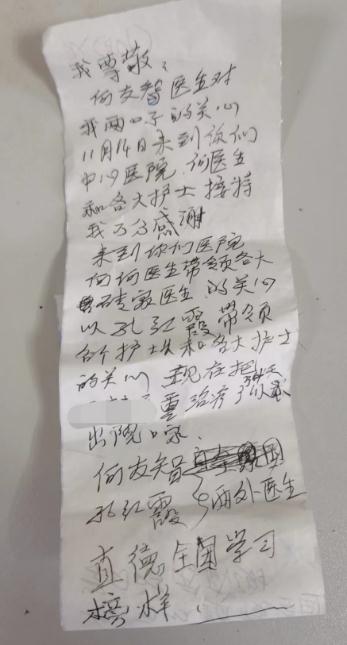 我尊敬：
何友智医生对
我两口子的关心
11月14日来到你们
中心医院，何医生
和各大护士接待
我万分感谢
来到你们医院
何医生带领各大
专家医生的关心
以孔红霞带领
各个护士和各大护士
的关心 现在把
重治疗
出院
何友智
孔红霞 两处医生
真德全国学习
榜样